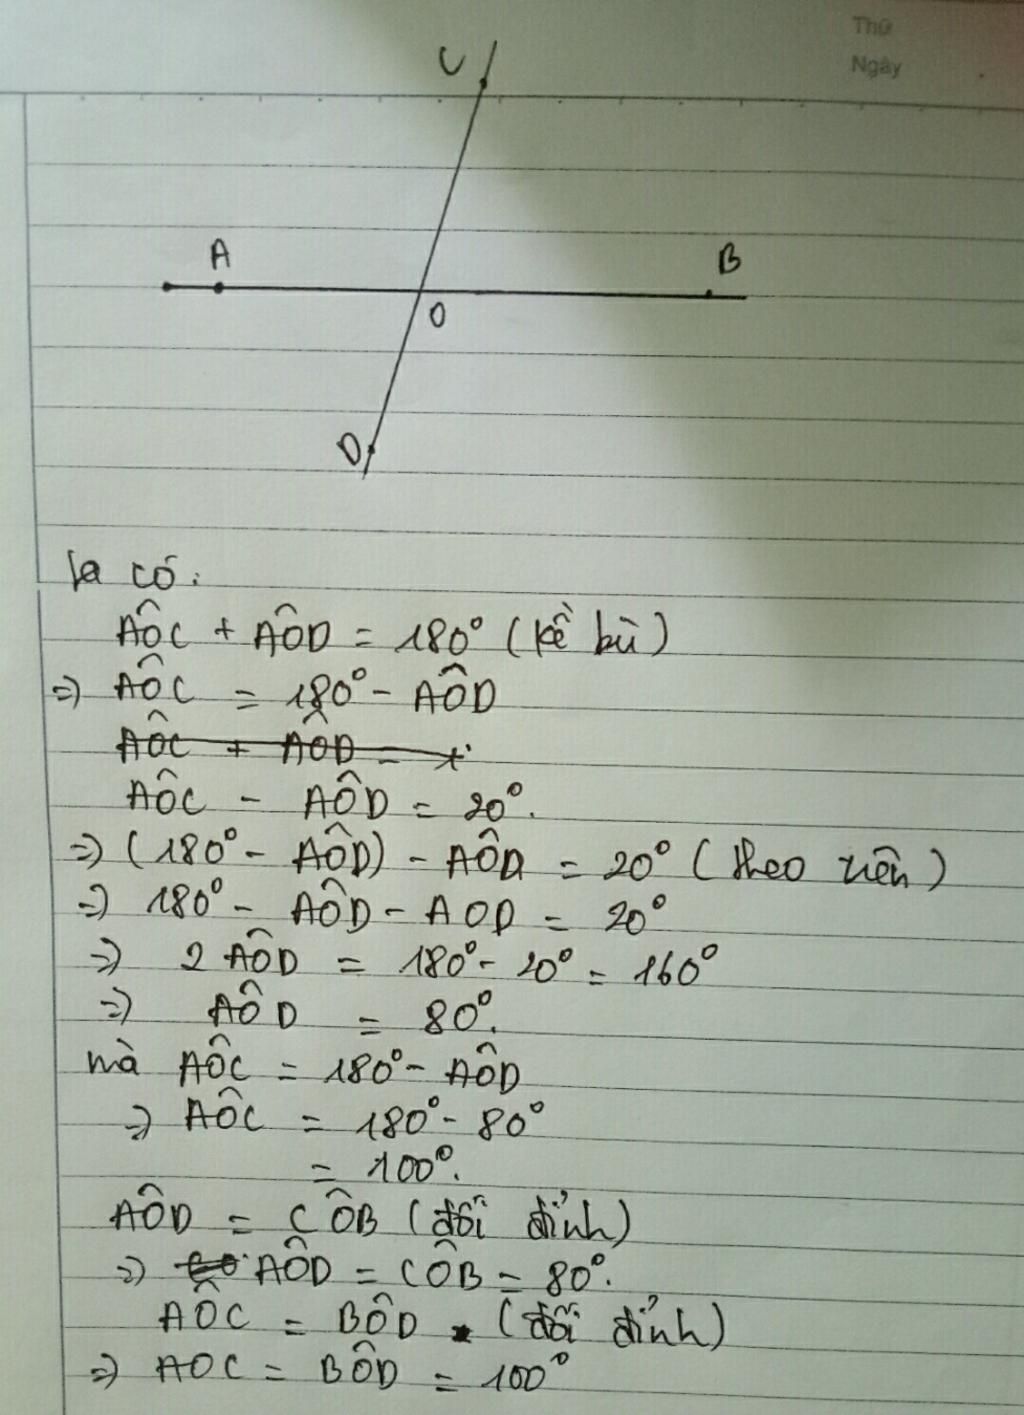 Thứ
Ngày
C
A
B
O
D
Ta có:
AÔC + AÔD = 180° (kề bù)
=> AÔC = 180° - AÔD
AÔC - AÔD = 20°.
=> (180° - AÔD) - AÔD = 20° (theo trên)
=> 180° - AÔD - AOD = 20°
=> 2 AÔD = 180° - 20° = 160°
=> AÔD = 80°.
mà AÔC = 180° - AÔD
=> AÔC = 180° - 80°
= 100°.
AÔD = CÔB (đối đỉnh)
=> AÔD = CÔB = 80°.
AÔC = BÔD (đối đỉnh)
=> AOC = BÔD = 100°